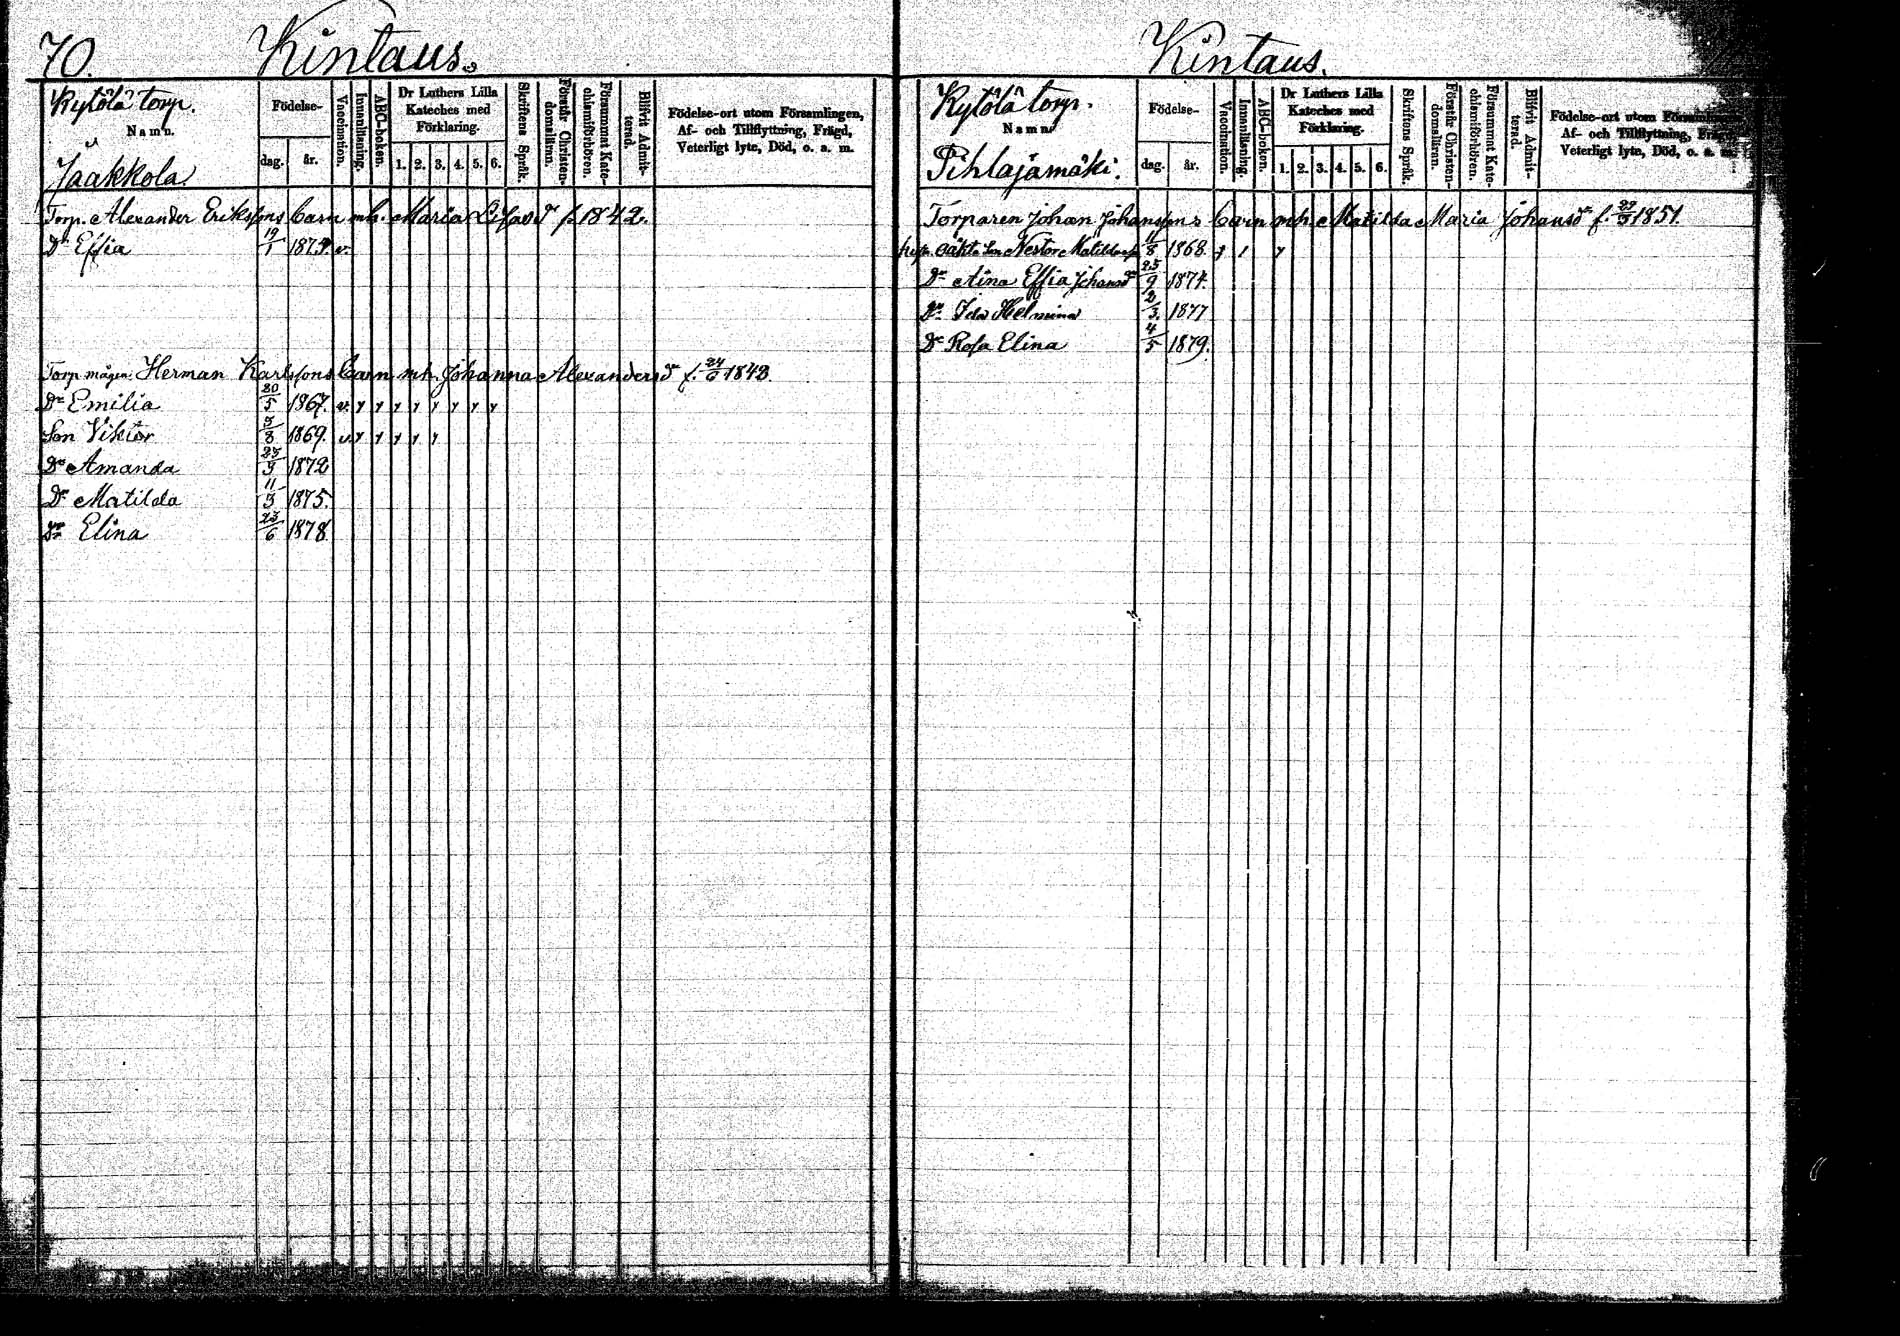 70. Kintaus.
Kytölä torp.
Namn.
Jaakkola.
Födelse-
dag. år.
Vaccination.
Innanläsning.
ABC-boken.
Dr Luthers Lilla
Kateches med
Förklaring.
1. 2. 3. 4. 5. 6.
Skriftens Språk.
Förstår Christen-
domsläran.
Försummat Kate-
chismiförhören.
Blifvit Admit-
terad.
Födelse-ort utom Församlingen,
Af- och Tillflyttning, Frägd,
Veterligt lyte, Död, o. a. m.
Torp. Alexander Erikssons barn mh. Maria Lisasdr f. 1842.
Dr Effia 19/1 1879. v.
Torp mågen Herman Karlssons barn mh. Johanna Alexandersdr f. 24/6 1843.
Dr Emilia 20/5 1867. v.
Son Viktor 1869. v.
Dr Amanda 1872
Dr Matilda 1875.
Dr Elina 23/6 1878
Kintaus.
Kytölä torp.
Namn.
Pihlajamäki.
Födelse-
dag. år.
Vaccination.
Innanläsning.
ABC-boken.
Dr Luthers Lilla
Kateches med
Förklaring.
1. 2. 3. 4. 5. 6.
Skriftens Språk.
Förstår Christen-
domsläran.
Försummat Kate-
chismiförhören.
Blifvit Admit-
terad.
Födelse-ort utom Församlingen,
Af- och Tillflyttning, Frägd,
Veterligt lyte, Död, o. a. m.
Torparen Johan Johanssons barn mh. Matilda Maria Johansdr f. 1851.
oäkta son Nestor 11/8 1868.
Dr Aina Effia Johansdr 25/9 1874.
Dr Ida Helmina 2/3 1877
Dr Rosa Elina 4/5 1879.